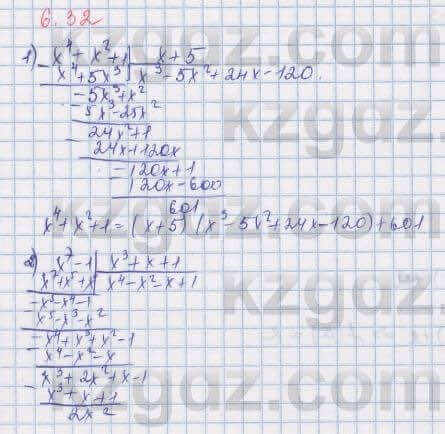 6.32
1) x⁴+x²+1 | x+5
- x⁴+5x³ | x³-5x²+24x-120.
-5x³+x²
- 5x³-25x²
24x²+1
- 24x+120x
-120x+1
120x-600
601
x⁴+x²+1=(x+5)(x³-5x²+24x-120)+601
2) x⁷-1 | x³+x+1
x⁷+x⁵+x | x⁴-x²-x+1
-x⁵-x⁴-1
x⁵-x³-x²
-x⁴+x³+x²-1
x⁴-x²-x
x³+2x²+x-1
- x³+x+1
2x²
kgaz.com